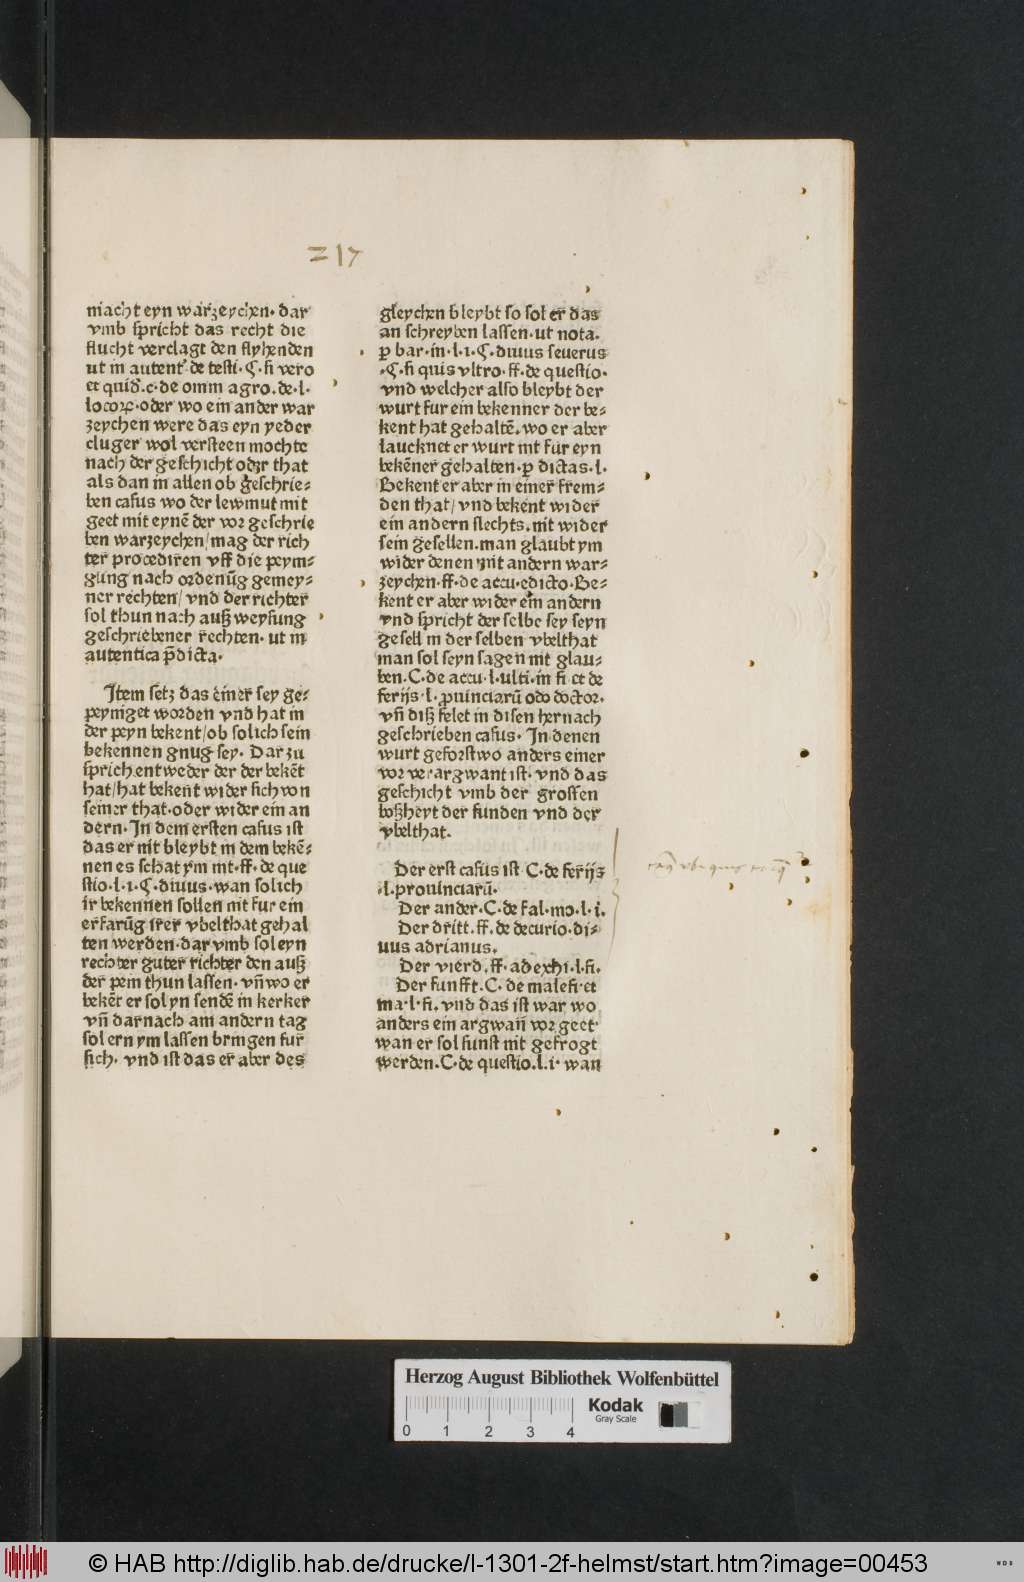 217
macht eyn warzeychen· dar
vmb spricht das recht die
flucht verclagt den flyhenden
ut in autent̉ de testi·ꝯ· si vero
et quid̉.c·de omm agro.de·l·
locorꝝ·oder wo ein ander war
zeychen were das eyn yeder
cluger wol versteen mochte
nach der geschicht odꝛ that
als dan in allen ob geschrie⸗
ben casus wo der lewmut mit
geet mit eynē der vor geschrie
ben warzeychen/mag der rich
ter procediren vff die peym⸗
gung nach ordenūg gemey⸗
ner rechten/ vnd der richter
sol thun nach auß weysung
geschriebener rechten· ut in
autentica p̄dicta·
Item setz das einer sey ge⸗
peyniget worden vnd hat in
der peyn bekent/ob solich sein
bekennen gnug sey· Dar zu
sprich entweder der der bekēt
hat/hat bekent wider sich von
seiner that·oder wider ein an
dern·In dem ersten casus ist
das er nit bleybt in dem bekē⸗
nen es schat ym nit·ff·de que
stio·l·i·ꝯ·diuus·wan solich
ir bekennen sollen nit fur ein
erfarūg irer vbelthat gehal
ten werden·dar vmb sol eyn
rechter guter richter den auß
der pein thun lassen· vn̄ wo er
bekēt er sol yn sendē in kerker
vn̄ darnach am andern tag
sol ern ym lassen bringen fur
sich· vnd ist das er aber des
gleychen bleybt so sol er das
an schreyben lassen·ut nota·
ꝑ bar·in·l·i·ꝯ·diuus seuerus
·ꝯ·si quis vltro·ff·de questio·
vnd welcher also bleybt der
wurt fur ein bekenner der be⸗
kent hat gehaltē.wo er aber
laucknet er wurt nit fur eyn
bekēner gehalten·ꝑ dictas·l·
Bekent er aber in einer frem⸗
den that/vnd bekent wider
ein andern slechts.nit wider
sein gesellen.man glaubt ym
wider denen nit andern war⸗
zeychen·ff·de accu·edicto·Be⸗
kent er aber wider ein andern
vnd spricht der selbe sey seyn
gesell in der selben vbelthat
man sol seyn sagen nit glau⸗
ben·C·de accu·l·ulti·in fi et de
ferijs·l·prouinciarū odo doctor·
vn̄ diß felet in disen hernach
geschrieben casus· In denen
wurt geforst wo anders einer
vor verargwant ist· vnd das
geschicht vmb der grossen
boßheyt der sunden vnd der
vbelthat.
Der erst casus ist C·de ferijs
·l·prouinciarū·
Der ander·C·de fal·mo·l·i·
Der dritt·ff·de decurio·di⸗
uus adrianus.
Der vierd·ff·ad exhi·l·fi.
Der funfft·C· de malefi·et
ma·l·fi. vnd das ist war wo
anders ein argwan vor geet·
wan er sol sunst nit gefrogt
werden·C·de questio·l·i· wan
Herzog August Bibliothek Wolfenbüttel
Kodak
Gray Scale
0 1 2 3 4
© HAB http://diglib.hab.de/drucke/l-1301-2f-helmst/start.htm?image=00453
WDB